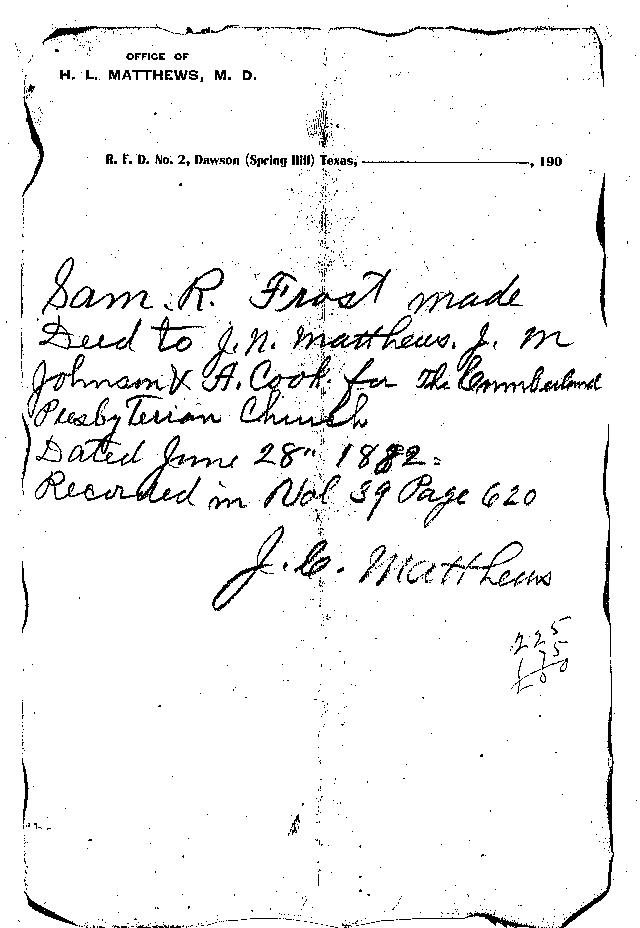 OFFICE OF
H. L. MATTHEWS, M. D.
R. F. D. No. 2, Dawson (Spring Hill) Texas, ————, 190
Sam. R. Frost made
Deed to J. N. Matthews. J. M
Johnson & A. Cook. for The Cumberland
Presbyterian Church
Dated June 28" 1882.
Recorded in Vol 39 Page 620
J. C. Matthews
225
175